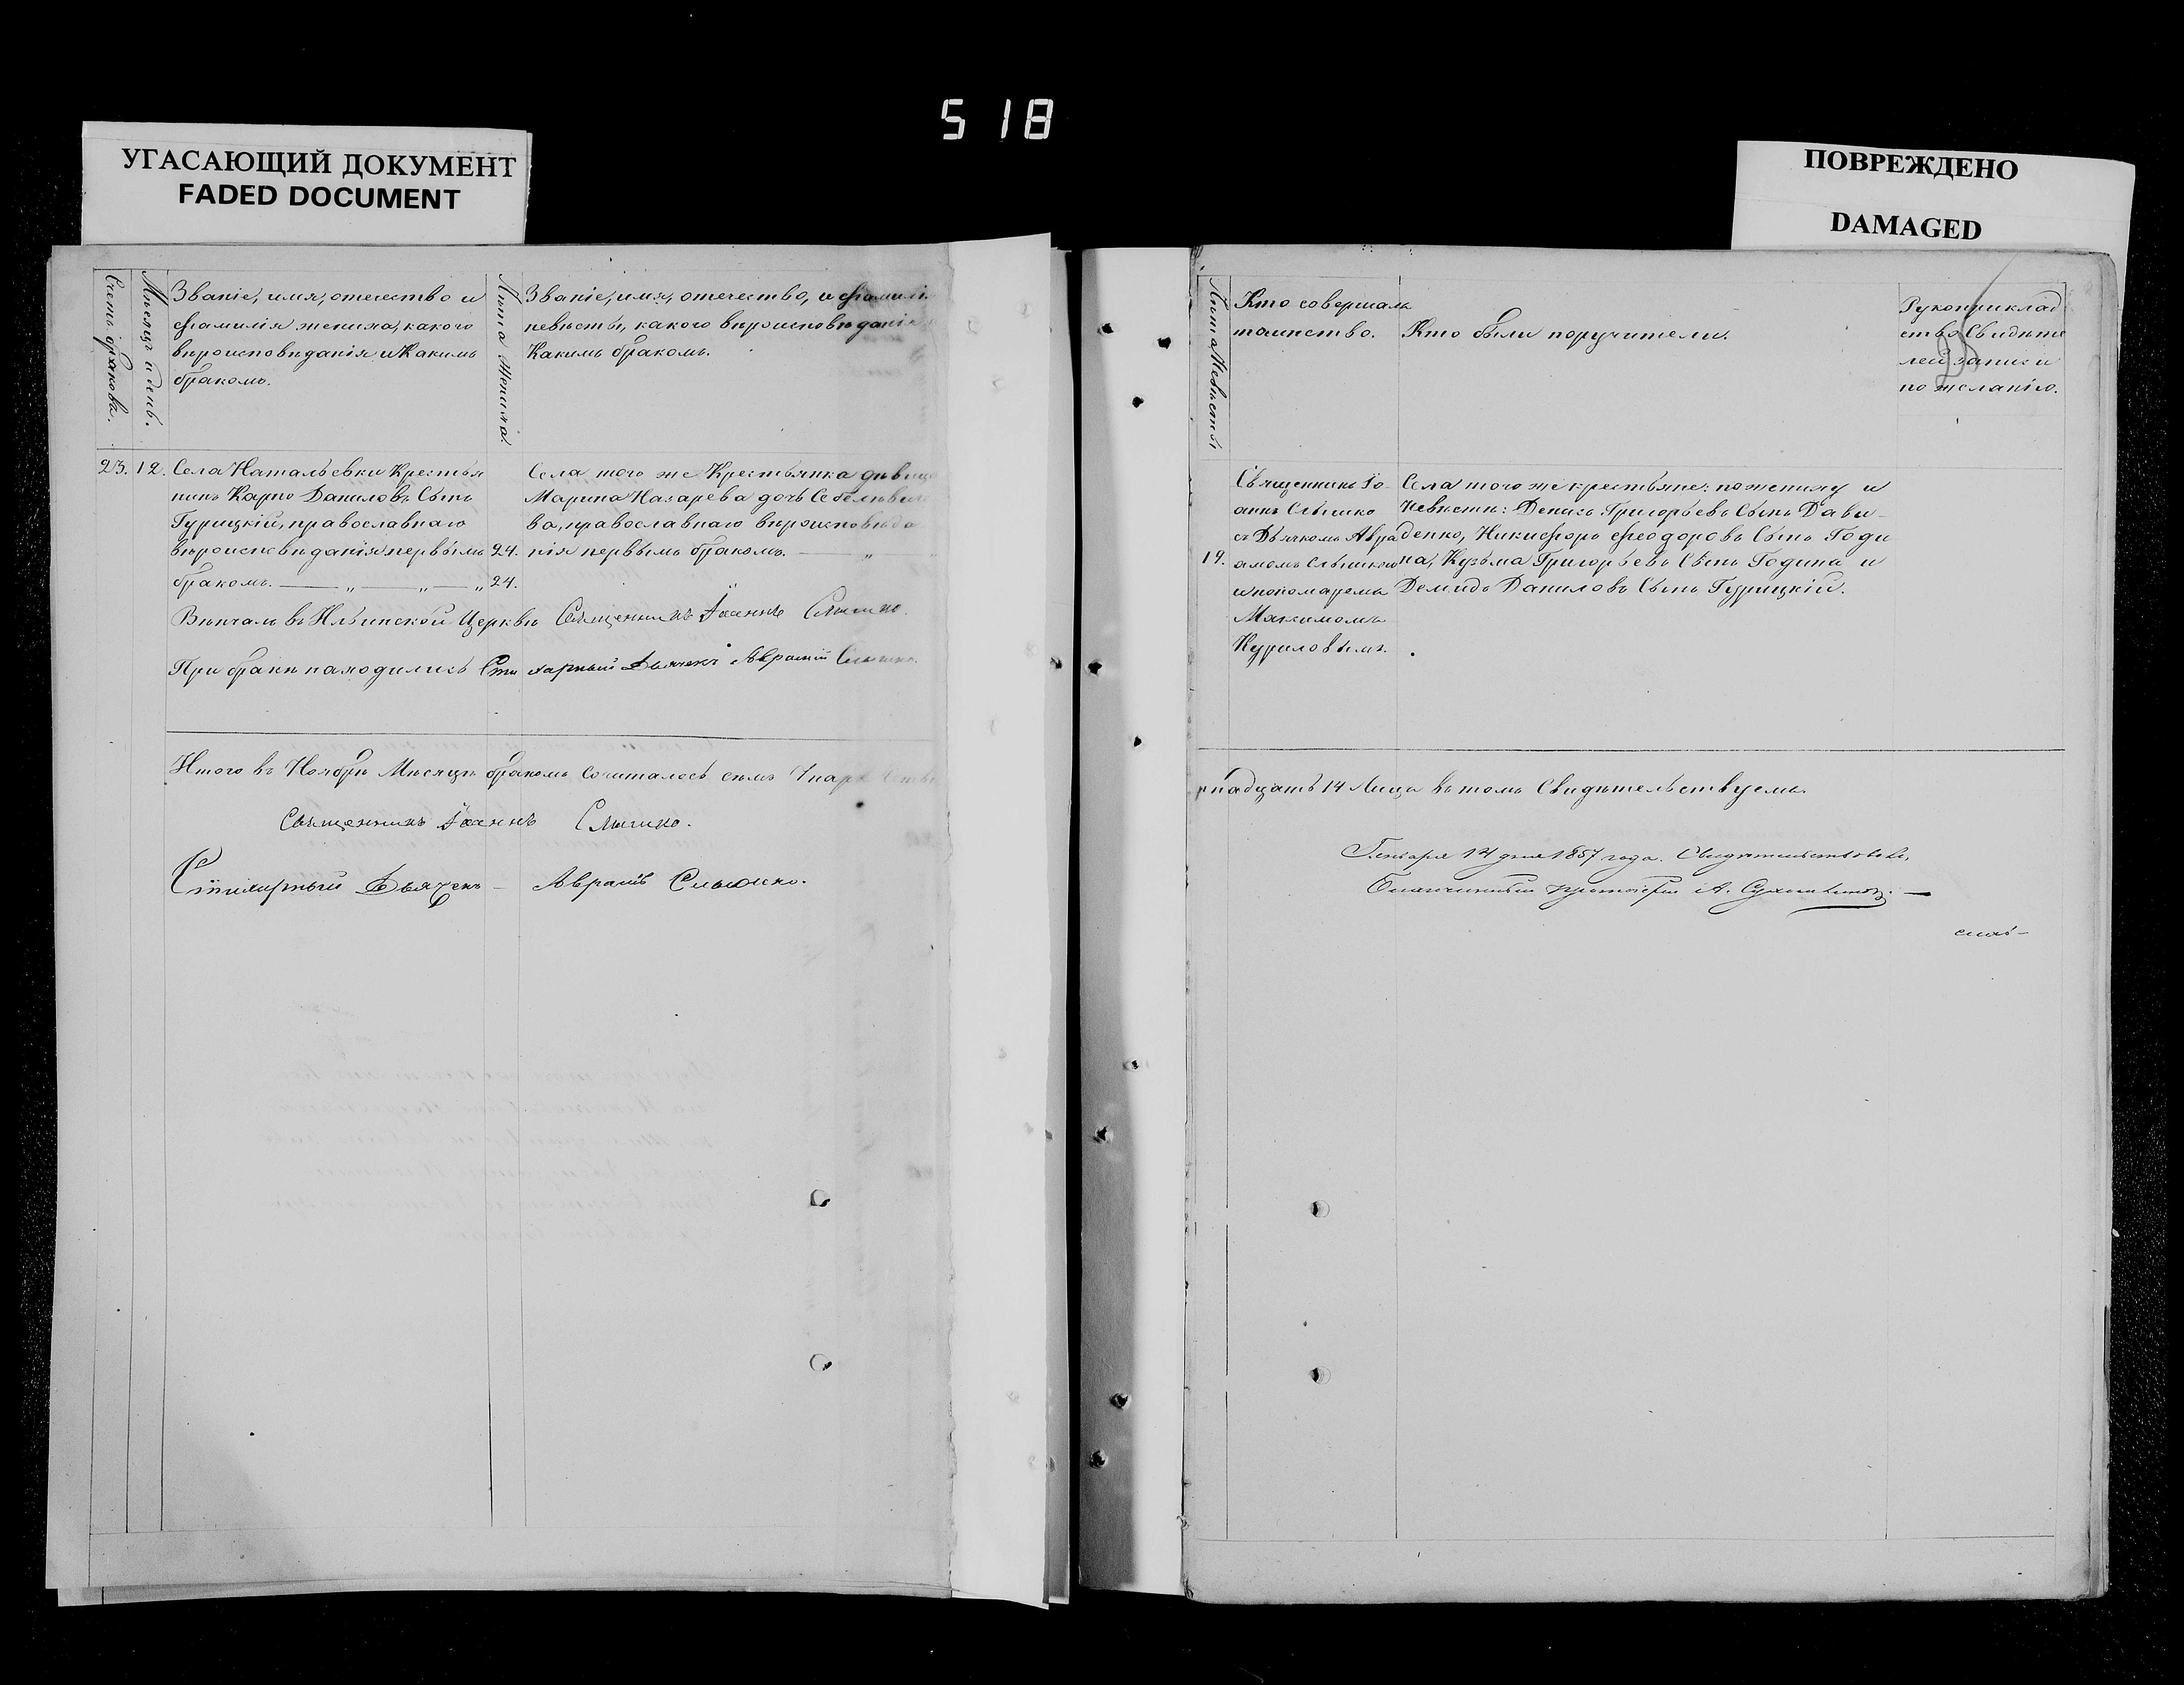 518
УГАСАЮЩИЙ ДОКУМЕНТ
FADED DOCUMENT
ПОВРЕЖДЕНО
DAMAGED
Счетъ браковъ.
Мѣсяцъ и день.
Званіе, имя, отечество и
фамилія жениха, какого
вѣроисповѣданія и Какимъ
бракомъ.
Лѣта Жениха.
Званіе, имя, отечество, и фамилі
невѣсты, какого вѣроисповѣданія
Какимъ бракомъ.
23. 12. Села Натальевки Крестья
нинъ Карпо Даниловъ Сынъ
Гурицкій, православнаго
вѣроисповѣданія первымъ 24.
бракомъ. 24.
Села того же Крестьянка дѣвица
Марина Назарева дочь
ва, православнаго вѣроисповѣда
нія первымъ бракомъ.
Вѣнчалъ въ Ильинской Церквѣ Священникъ Іоаннъ Слышко.
При бракѣ находились Стихарный Дьячекъ Аврамій
Итого въ Ноябрѣ Мѣсяцѣ бракомъ сочиталось семь 7 паръ
Священникъ Іоаннъ Слышко.
Стихарный Дьячекъ Аврамій
Лѣта Невѣсты
Кто совершалъ
таинство.
Кто были поручители.
Рукоприклад
ство Свидѣте
лей записи
по желанію.
19.
Священникъ Іо-
аннъ Слышко
съ Дьячкомъ Авра
амомъ
и пономаремъ
Максимомъ
Куриловымъ.
Села того же крестьяне: по жениху и
невѣстѣ: Денисъ Григорьевъ Сынъ Дави-
денко, Никифоръ Феодоровъ Сынъ Годи
на, Кузьма Григорьевъ Сынъ Година и
Демидъ Даниловъ Сынъ Гурицкій.
рнадцать 14 Лица въ томъ Свидѣтельствуемъ.
Генваря 14 дня 1857 года. Свидѣтельствовалъ,
Благочинный протоіерей А.